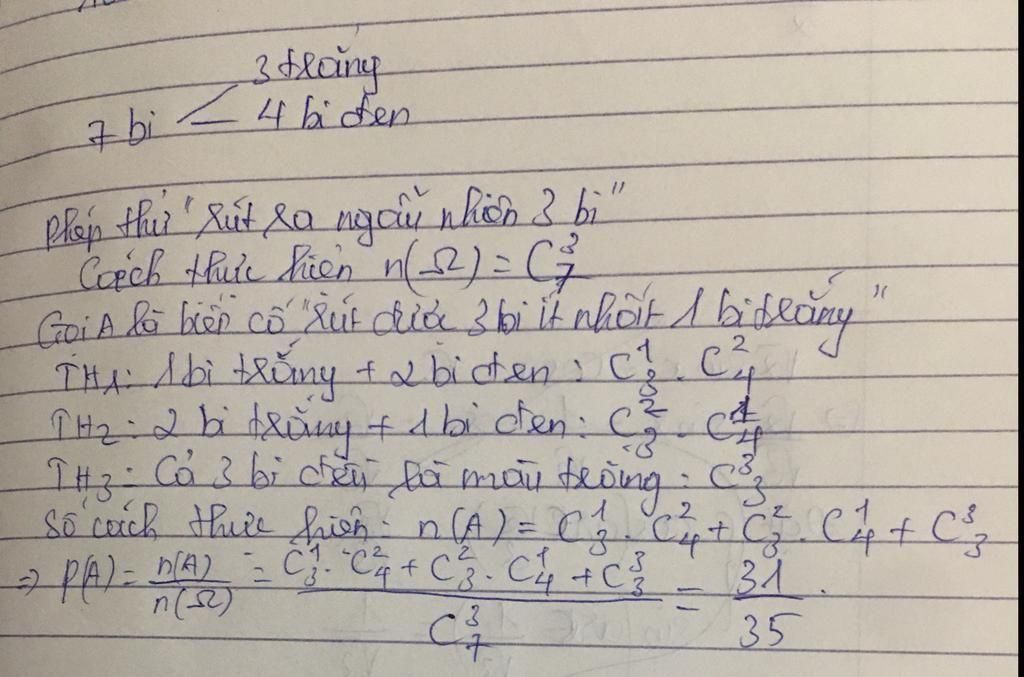 3 trắng
7 bi < 4 bi đen
Phép thử "Rút ra ngẫu nhiên 3 bi"
Cách thực hiện n(Ω) = C₇³
Gọi A là biến cố "Rút được 3 bi ít nhất 1 bi trắng"
TH1: 1 bi trắng + 2 bi đen : C₃¹ . C₄²
TH2 : 2 bi trắng + 1 bi đen : C₃² . C₄¹
TH3 : Cả 3 bi đều là màu trắng : C₃³
Số cách thực hiện : n(A) = C₃¹ . C₄² + C₃² . C₄¹ + C₃³
=> P(A) = n(A)/n(Ω) = (C₃¹ . C₄² + C₃² . C₄¹ + C₃³)/C₇³ = 31/35 .